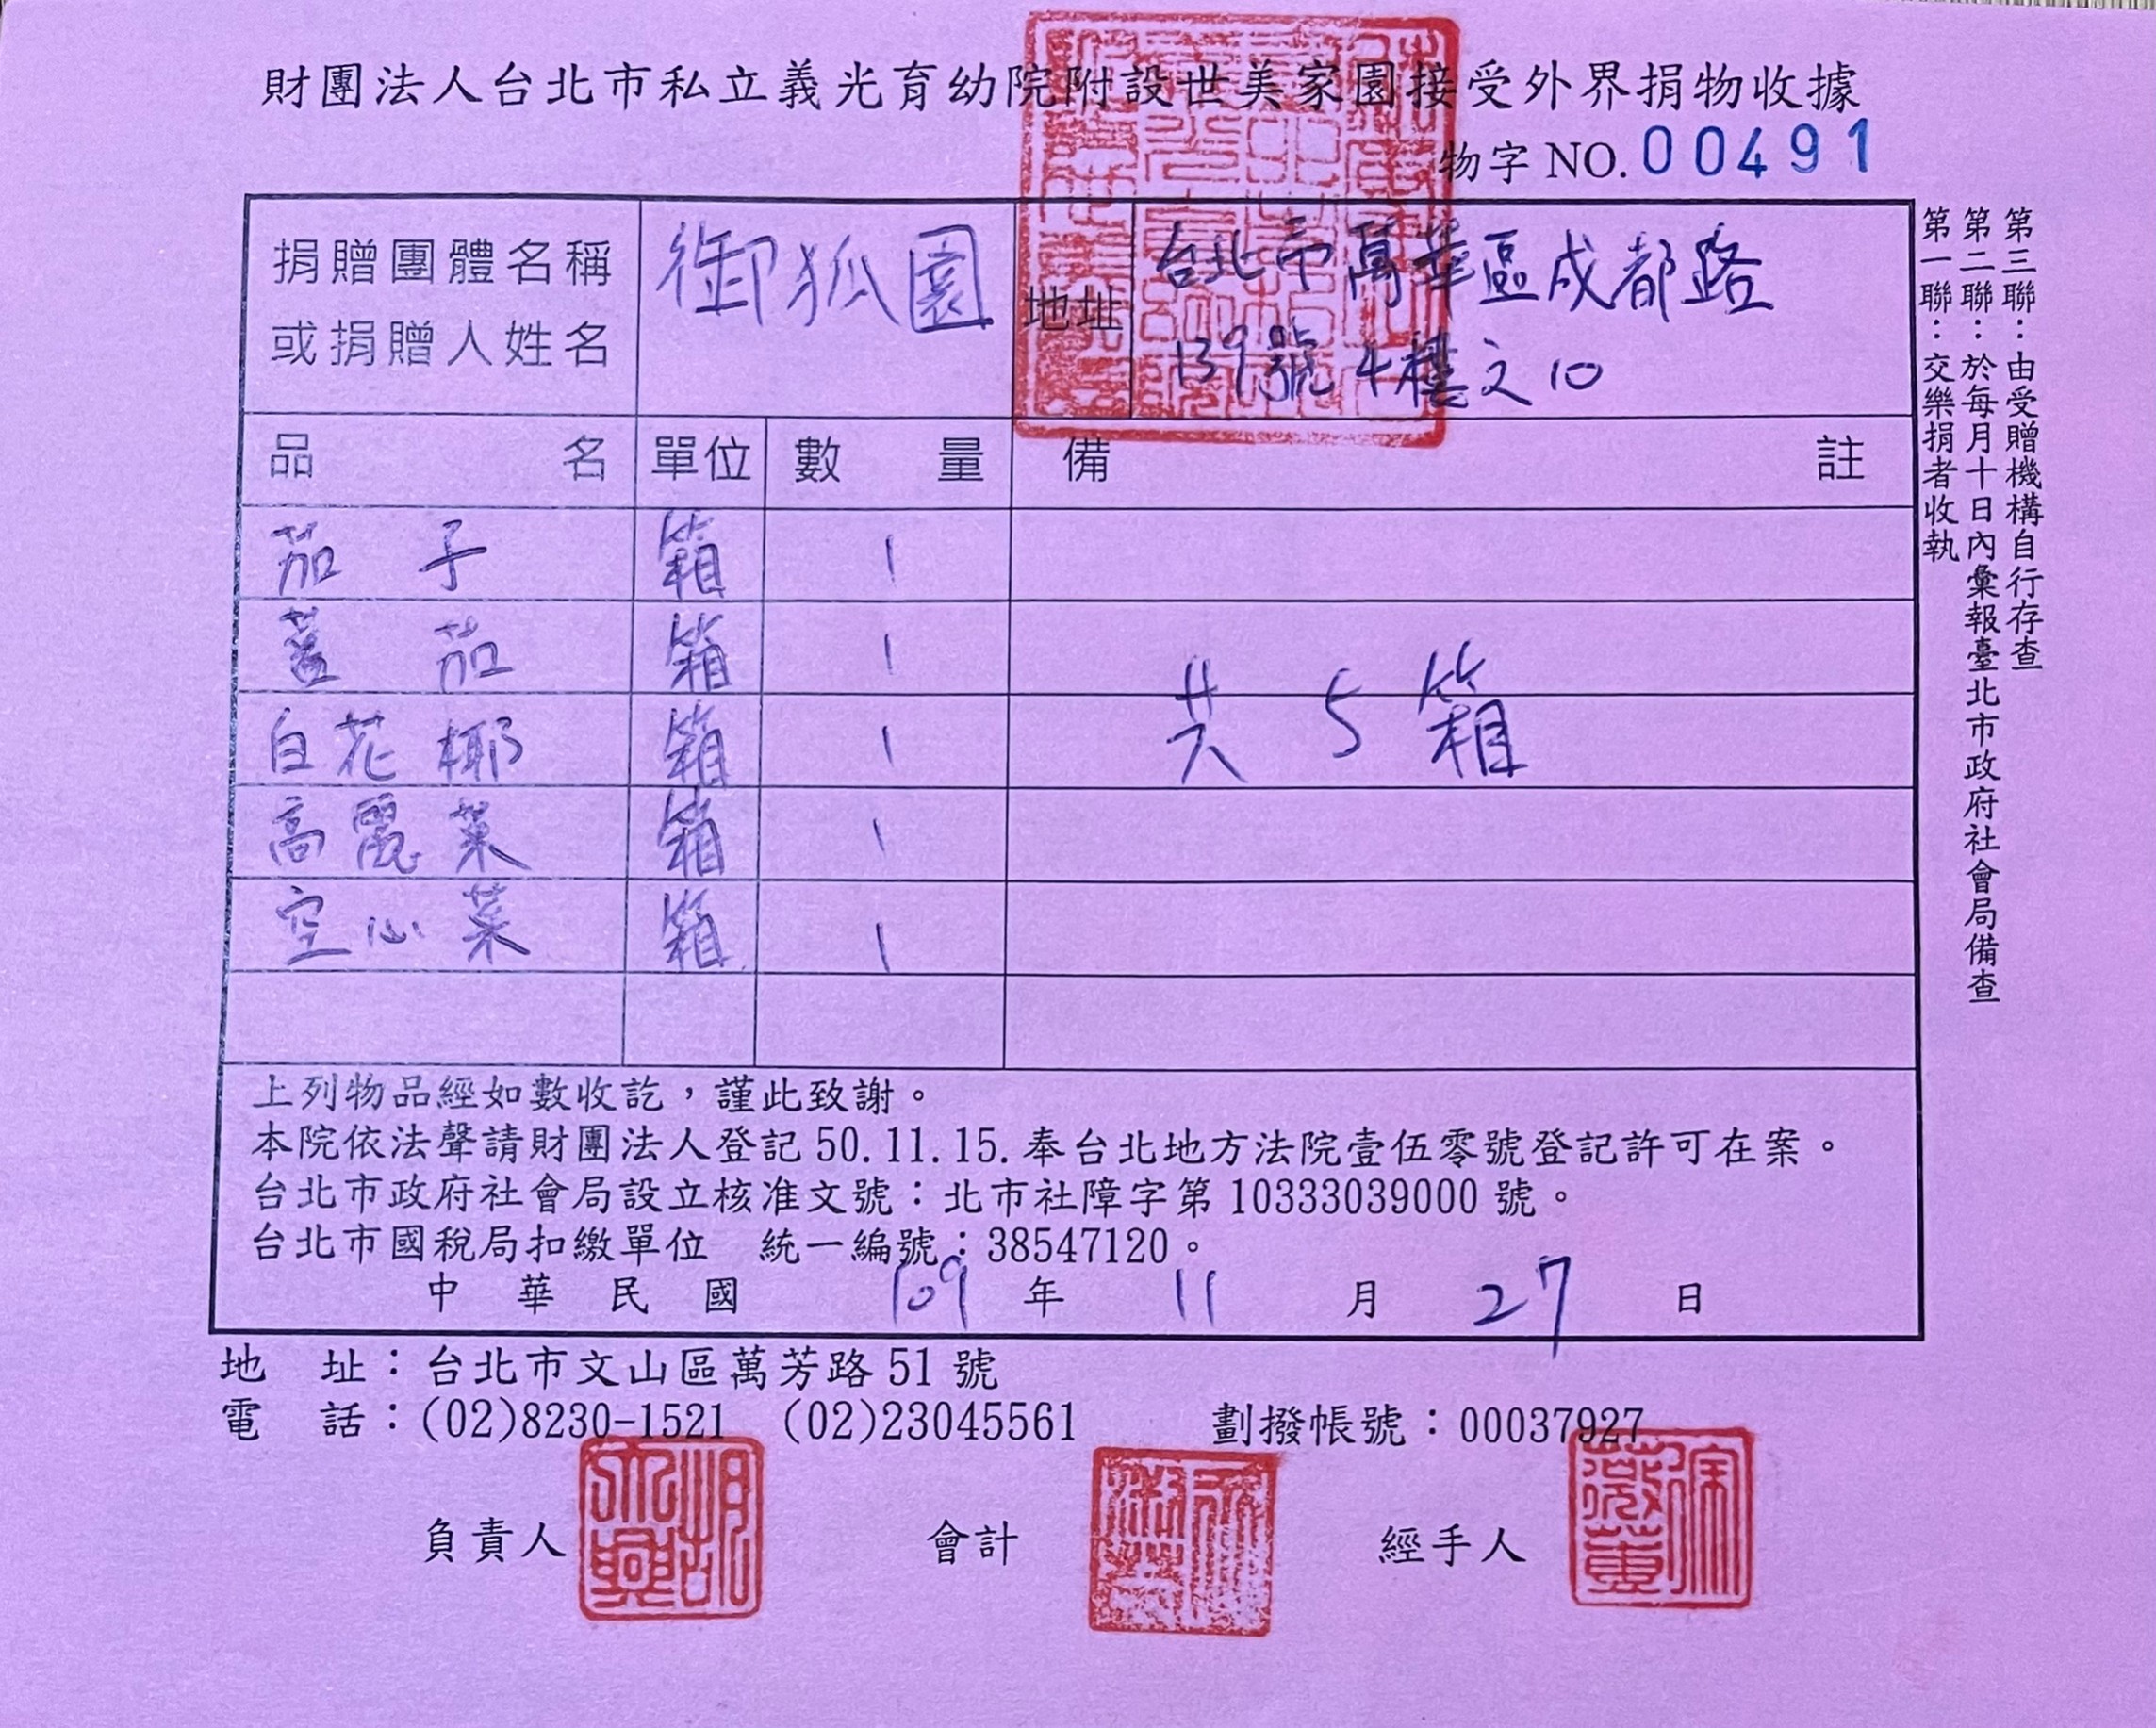 財團法人台北市私立義光育幼院附設世美家園接受外界捐物收據
物字 NO. 00491
捐贈團體名稱
或捐贈人姓名
御狐園
地址
台北市萬華區成都路
139號4樓之10
品名 單位 數量 備註
茄子 箱 1
蕃茄 箱 1
白花椰 箱 1
共5箱
高麗菜 箱 1
空心菜 箱 1
上列物品經如數收訖，謹此致謝。
本院依法聲請財團法人登記50.11.15.奉台北地方法院壹伍零號登記許可在案。
台北市政府社會局設立核准文號：北市社障字第10333039000號。
台北市國稅局扣繳單位 統一編號：38547120。
中華民國 109 年 11 月 27 日
地址：台北市文山區萬芳路51號
電話：(02)8230-1521 (02)23045561 劃撥帳號：00037927
負責人 會計 經手人
第三聯：由受贈機構自行存查
第二聯：於每月十日內彙報臺北市政府社會局備查
第一聯：交樂捐者收執